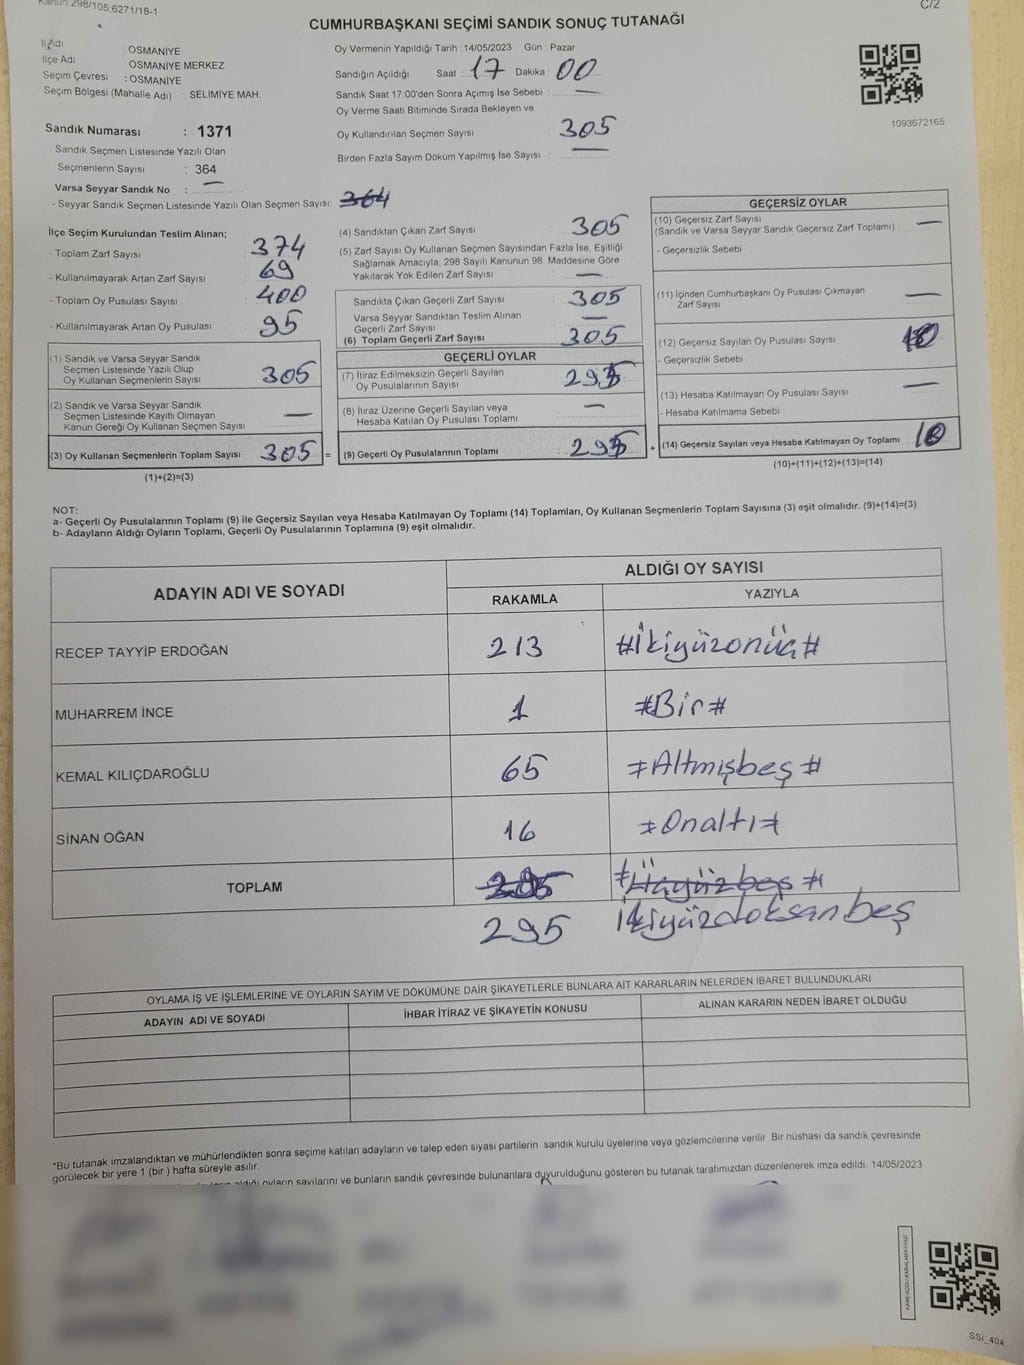 Kanun:298/105,6271/18-1
C/2
CUMHURBAŞKANI SEÇİMİ SANDIK SONUÇ TUTANAĞI
İl Adı : OSMANİYE
İlçe Adı : OSMANİYE MERKEZ
Seçim Çevresi : OSMANİYE
Seçim Bölgesi (Mahalle Adı) : SELİMİYE MAH.
Sandık Numarası : 1371
- Sandık Seçmen Listesinde Yazılı Olan
Seçmenlerin Sayısı : 364
Varsa Seyyar Sandık No : —
- Seyyar Sandık Seçmen Listesinde Yazılı Olan Seçmen Sayısı: 364
Oy Vermenin Yapıldığı Tarih : 14/05/2023 Gün : Pazar
Sandığın Açıldığı Saat : 17 Dakika : 00
Sandık Saat 17:00'den Sonra Açımış İse Sebebi : —
Oy Verme Saati Bitiminde Sırada Bekleyen ve
Oy Kullandırılan Seçmen Sayısı : 305
Birden Fazla Sayım Döküm Yapılmış İse Sayısı : —
1093672165
İlçe Seçim Kurulundan Teslim Alınan;
- Toplam Zarf Sayısı : 374
- Kullanılmayarak Artan Zarf Sayısı : 69
- Toplam Oy Pusulası Sayısı : 400
- Kullanılmayarak Artan Oy Pusulası : 95
(1) Sandık ve Varsa Seyyar Sandık
Seçmen Listesinde Yazılı Olup
Oy Kullanan Seçmenlerin Sayısı : 305
(2) Sandık ve Varsa Seyyar Sandık
Seçmen Listesinde Kayıtlı Olmayan
Kanun Gereği Oy Kullanan Seçmen Sayısı : —
(3) Oy Kullanan Seçmenlerin Toplam Sayısı : 305 =
(1)+(2)=(3)
(4) Sandıktan Çıkan Zarf Sayısı : 305
(5) Zarf Sayısı Oy Kullanan Seçmen Sayısından Fazla İse, Eşitliği
Sağlamak Amacıyla; 298 Sayılı Kanunun 98. Maddesine Göre
Yakılarak Yok Edilen Zarf Sayısı : —
Sandıkta Çıkan Geçerli Zarf Sayısı : 305
Varsa Seyyar Sandıktan Teslim Alınan
Geçerli Zarf Sayısı : —
(6) Toplam Geçerli Zarf Sayısı : 305
GEÇERLİ OYLAR
(7) İtiraz Edilmeksizin Geçerli Sayılan
Oy Pusulalarının Sayısı : 295
(8) İtiraz Üzerine Geçerli Sayılan veya
Hesaba Katılan Oy Pusulası Toplamı : —
(9) Geçerli Oy Pusulalarının Toplamı : 295 +
GEÇERSİZ OYLAR
(10) Geçersiz Zarf Sayısı : —
(Sandık ve Varsa Seyyar Sandık Geçersiz Zarf Toplamı)
- Geçersizlik Sebebi :
(11) İçinden Cumhurbaşkanı Oy Pusulası Çıkmayan
Zarf Sayısı : —
(12) Geçersiz Sayılan Oy Pusulası Sayısı : 10
- Geçersizlik Sebebi :
(13) Hesaba Katılmayan Oy Pusulası Sayısı : —
- Hesaba Katılmama Sebebi :
(14) Geçersiz Sayılan veya Hesaba Katılmayan Oy Toplamı : 10
(10)+(11)+(12)+(13)=(14)
NOT:
a- Geçerli Oy Pusulalarının Toplamı (9) ile Geçersiz Sayılan veya Hesaba Katılmayan Oy Toplamı (14) Toplamları, Oy Kullanan Seçmenlerin Toplam Sayısına (3) eşit olmalıdır. (9)+(14)=(3)
b- Adayların Aldığı Oyların Toplamı, Geçerli Oy Pusulalarının Toplamına (9) eşit olmalıdır.
ADAYIN ADI VE SOYADI
ALDIĞI OY SAYISI
RAKAMLA YAZIYLA
RECEP TAYYİP ERDOĞAN 213 #İkiyüzonüç#
MUHARREM İNCE 1 #Bir#
KEMAL KILIÇDAROĞLU 65 #Altmışbeş#
SİNAN OĞAN 16 #Onaltı#
TOPLAM #Üçyüzbeş#
295 İkiyüzdoksanbeş
OYLAMA İŞ VE İŞLEMLERİNE VE OYLARIN SAYIM VE DÖKÜMÜNE DAİR ŞİKAYETLERLE BUNLARA AİT KARARLARIN NELERDEN İBARET BULUNDUKLARI
ADAYIN ADI VE SOYADI İHBAR İTİRAZ VE ŞİKAYETİN KONUSU ALINAN KARARIN NEDEN İBARET OLDUĞU
*Bu tutanak imzalandıktan ve mühürlendikten sonra seçime katılan adayların ve talep eden siyasi partilerin sandık kurulu üyelerine veya gözlemcilerine verilir. Bir nüshası da sandık çevresinde
görülecek bir yere 1 (bir ) hafta süreyle asılır.
aldığı oyların sayılarını ve bunların sandık çevresinde bulunanlara duyurulduğunu gösteren bu tutanak tarafımızdan düzenlenerek imza edildi. 14/05/2023
SSİ_404